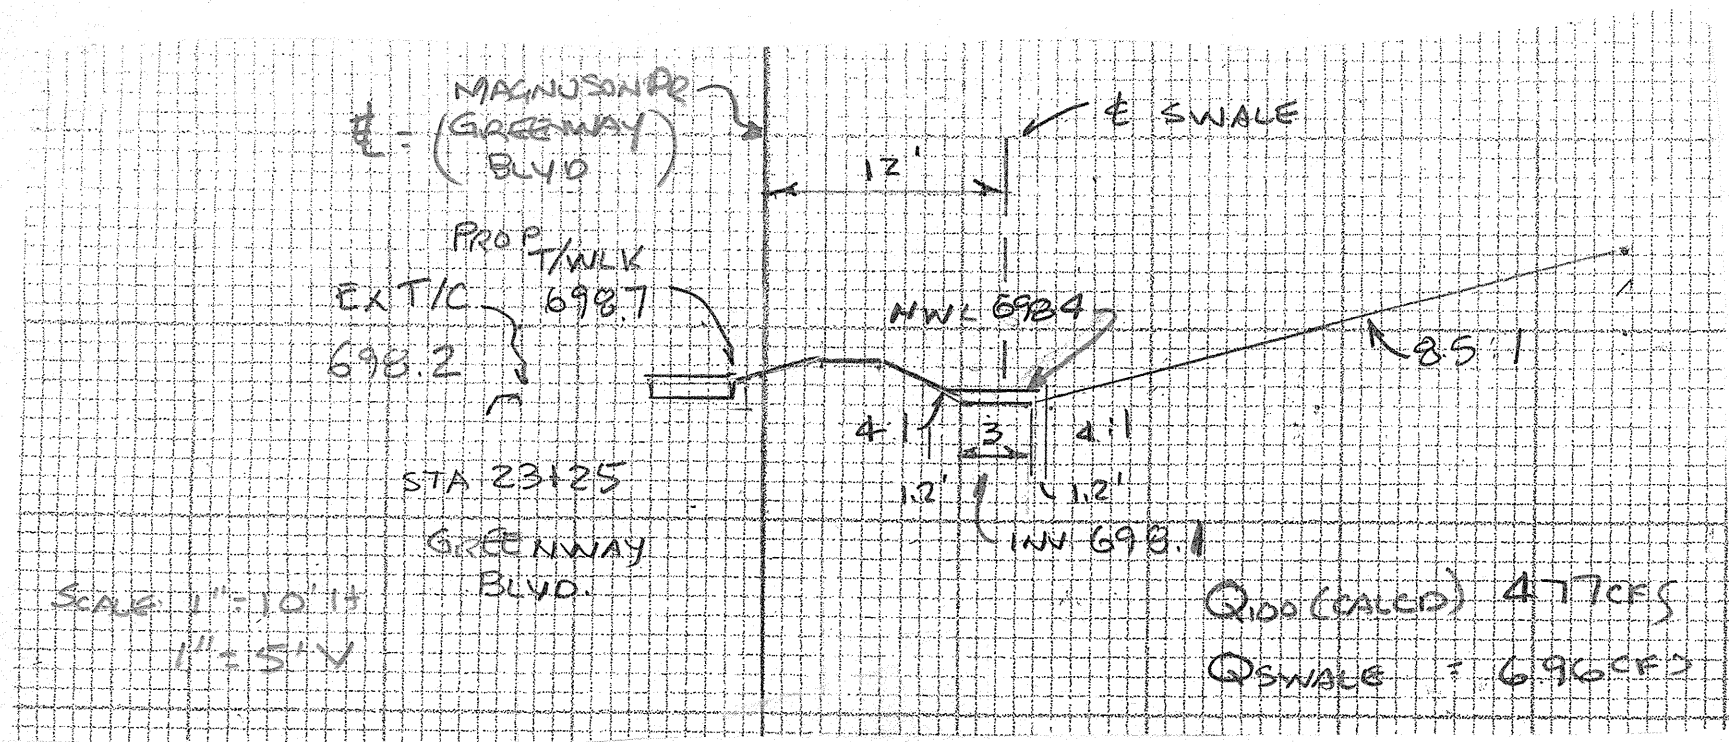 MAGNUSON DR
℄ - (GREENWAY
BLVD)
℄ SWALE
12'
PROP
T/WLK
698.7
EX T/C
698.2
NWL 698.4
8.5:1
4:1
3
4:1
1.2'
1.2'
INV 698.1
STA 23+25
GREENWAY
BLVD.
SCALE 1"=10' H
1"=5' V
Q100 (CALCD) 477CFS
QSWALE = 696CFS